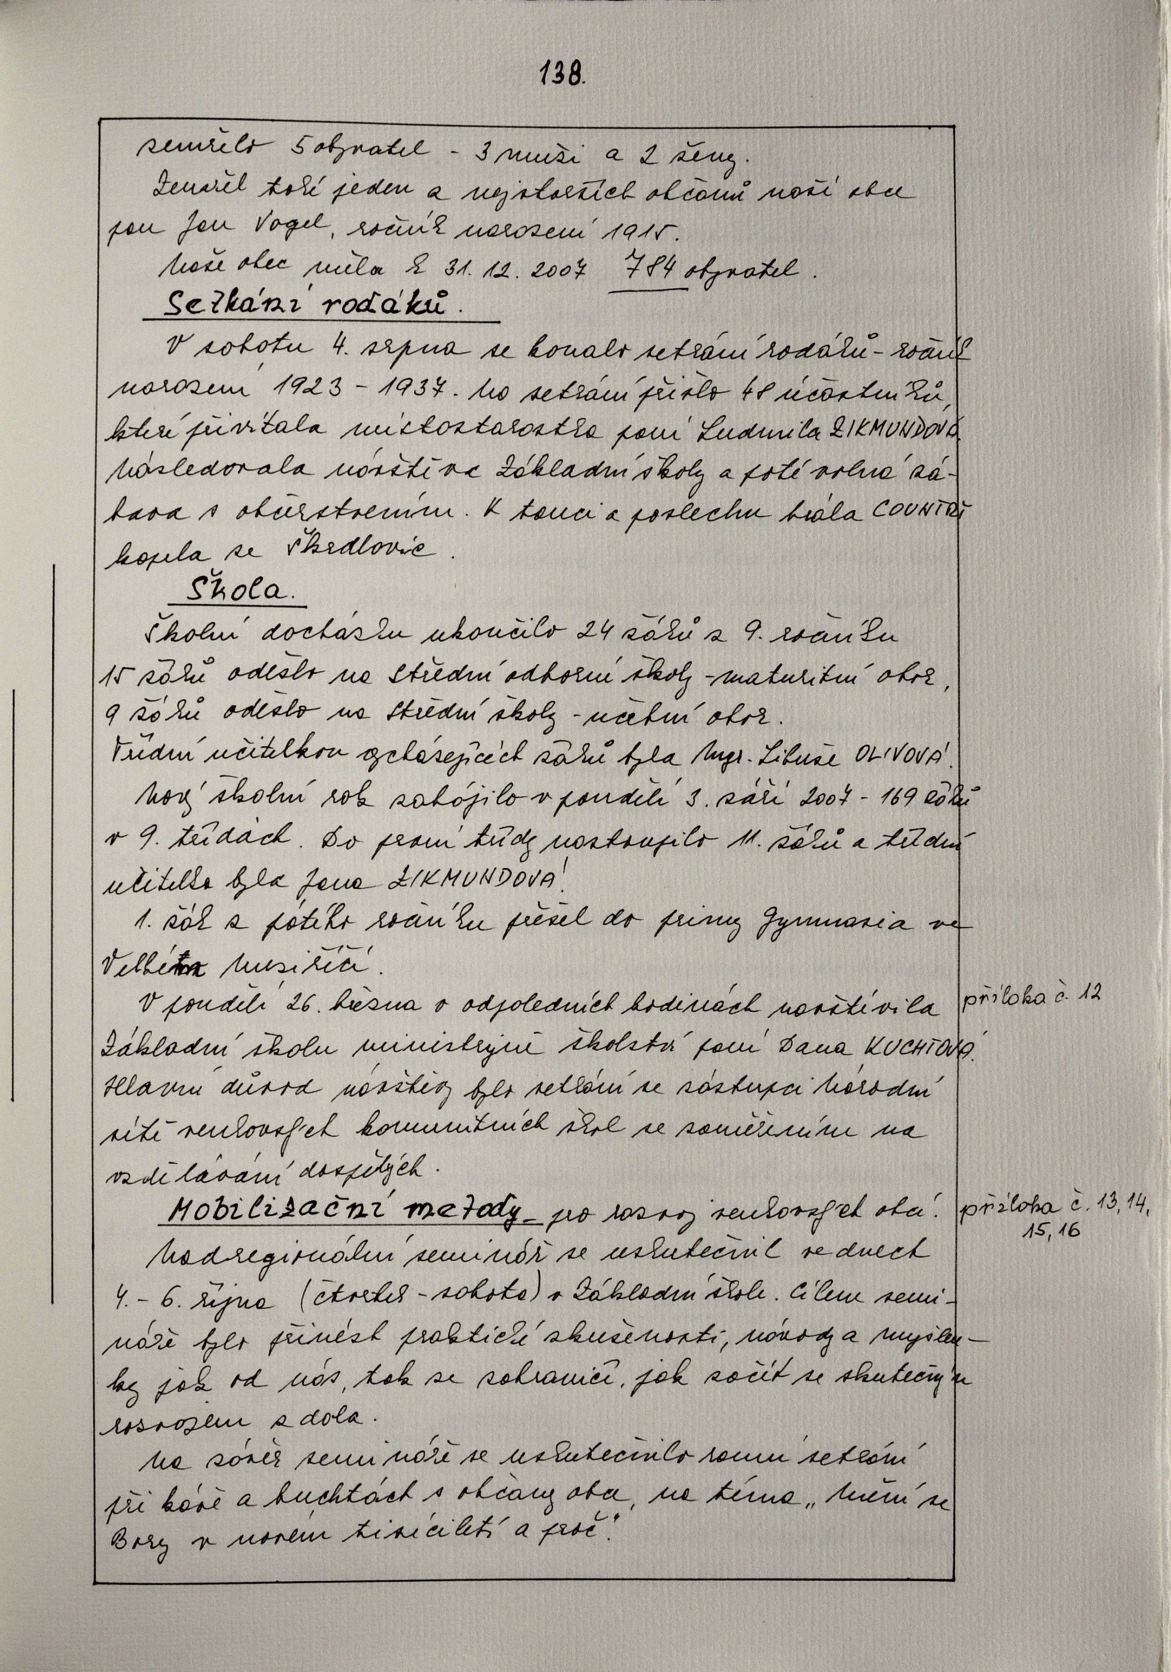 138.
zemřelo 5 obyvatel - 3 muži a 2 ženy.
Zemřel též jeden z nejstarších občanů naší obce
pan Jan Vogel, ročník narození 1915.
Naše obec měla k 31.12.2007 784 obyvatel.
Setkání rodáků.
V sobotu 4. srpna se konalo setkání rodáků - ročník
narození 1923 - 1937. Na setkání přišlo 48 účastníků,
které přivítala místostarostka paní Ludmila ZIKMUNDOVÁ
Následovala návštěva Základní školy a poté volná zá-
bava s občerstvením. K tanci a poslechu hrála COUNTRI
kapela ze Škrdlovic.
Škola.
Školní docházku ukončilo 24 žáků z 9. ročníku
15 žáků odešlo na Střední odborné školy - maturitní obor,
9 žáků odešlo na Střední školy - učební obor.
Třídní učitelkou vycházejících žáků byla Mgr. Libuše OLIVOVÁ.
Nový školní rok zahájilo v pondělí 3. září 2007 - 169 žáků
v 9. třídách. Do první třídy nastoupilo 11. žáků a třídní
učitelka byla Jana ZIKMUNDOVÁ.
1. žák z pátého ročníku přešel do primy Gymnasia ve
Velkém Meziříčí.
V pondělí 26. března v odpoledních hodinách navštívila
příloha č. 12
Základní školu ministryně školství paní Dana KUCHTOVÁ.
Hlavní důvod návštěvy bylo setkání se zástupci Národní
sítě venkovských komunitních škol se zaměřením na
vzdělávání dospělých.
Mobilizační metody - pro rozvoj venkovských obcí.
příloha č. 13, 14,
15, 16
Nadregionální seminář se uskutečnil ve dnech
4. - 6. října (čtvrtek - sobota) v Základní škole. Cílem semi-
náře bylo přinést praktické zkušenosti, návody a myšlen-
ky jak od nás, tak ze zahraničí, jak začít se skutečným
rozvojem z dola.
Na závěr semináře se uskutečnilo ranní setkání
při kávě a buchtách s občany obce, na téma „Mění se
Bory v novém tisíciletí a proč."